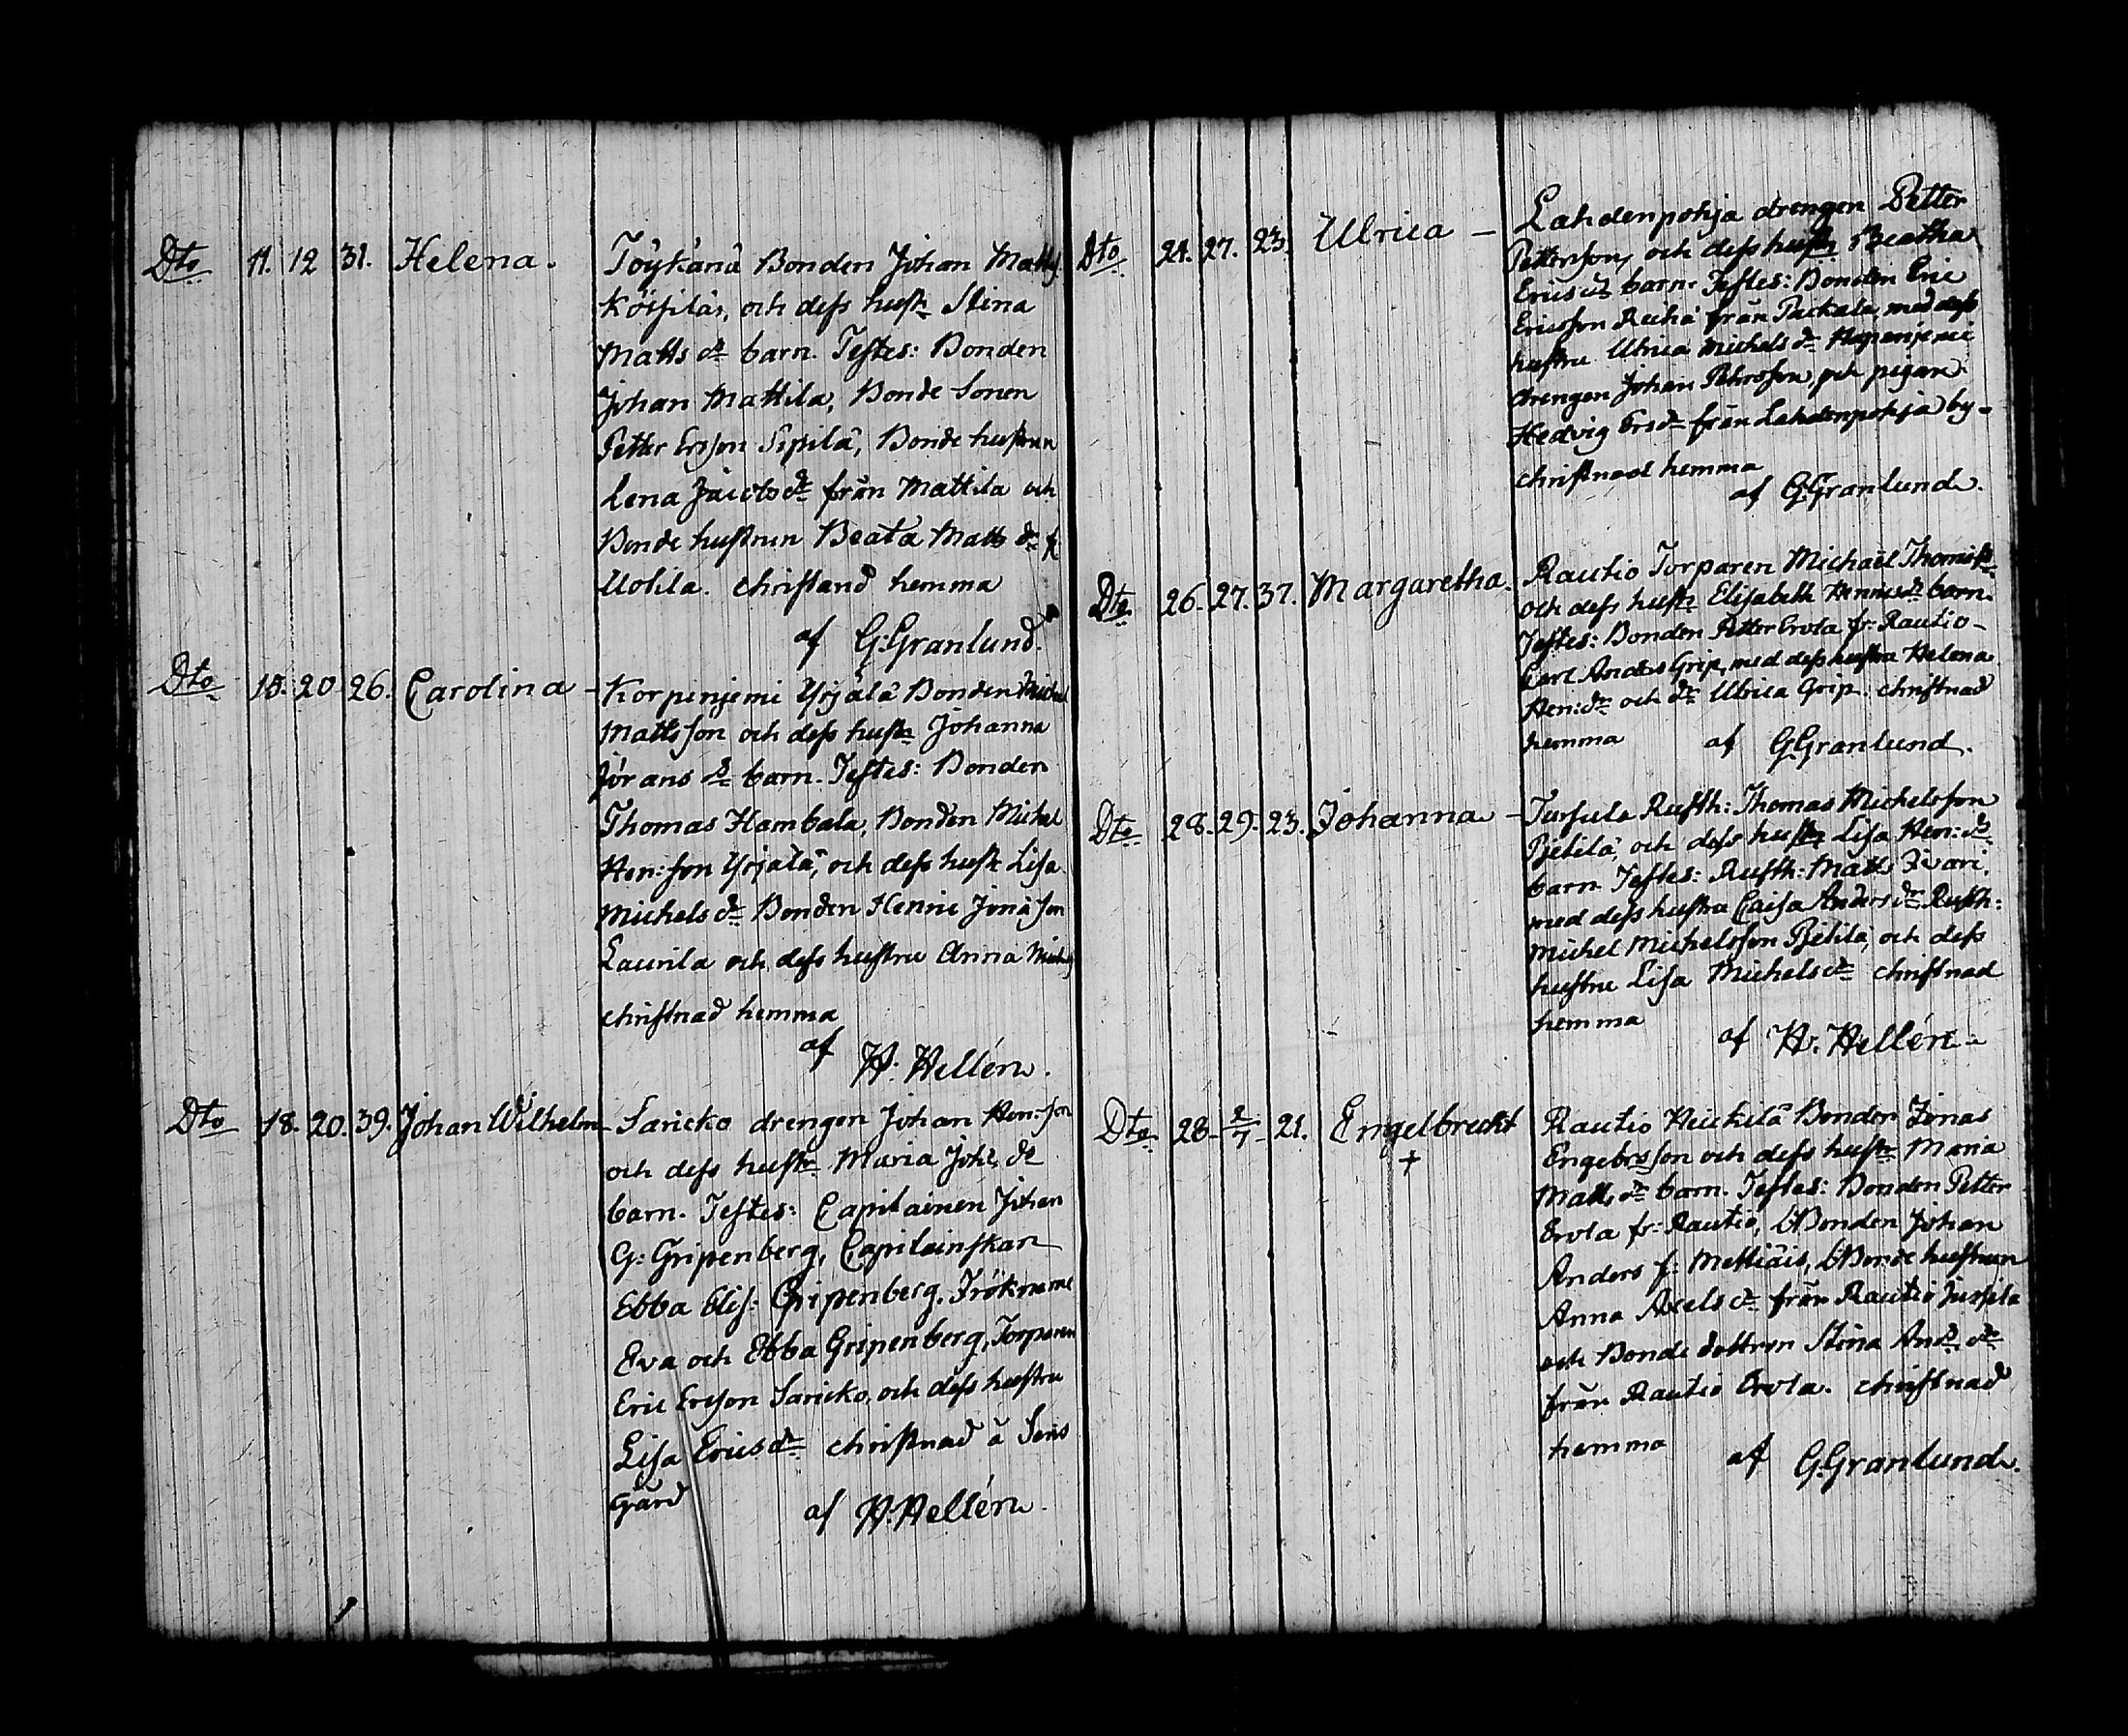 Dto 11. 12 31. Helena. Töykänä Bonden Johan Matts
Köysilä, och dess hust: Stina
Matts dr barn. Testes: Bonden
Johan Mattila, Bonde Sonen
Petter Ersson Sipilä, Bonde hustrun
Lena Jacobs dr från Mattila och
Bonde hustrun Beata Matts dr f:
Uotila. christnad hemma
af G: Granlund.
Dto 18. 20 26. Carolina – Korpenjemi Yrjälä Bonden Michel
Mattsson och dess hustr Johanna
Jörans dr barn. Testes: Bonden
Thomas Hambala, Bonden Michel
Hen:son Yrjälä, och dess hustr Lisa
Michels dr Bonden Henric Jonasson
Laurila och dess hustru Anna Michels
christnad hemma
af H. Hellén.
Dto 18. 20. 39. Johan Wilhelm – Saricko drengen Johan Hen:son
och dess hustr Maria Johs dr
barn. Testes: Capitainen Johan
G: Gripenberg, Capitainskan
Ebba Elis: Gripenberg, Fröknarne
Eva och Ebba Gripenberg, Torparen
Eric Ersson Saricko, och dess hustru
Lisa Erics dr christnad å Säris
Gård
af H. Hellén.
Dto 24. 27. 23. Ulrica – Lahdenpohja drengen Petter
Pettersson, och dess hustr Beatha
Erics dr barn. Testes: Bonden Eric
Ericsson från med dess
hustru Ulrica Michels dr
drengen Johan Petersson, och pigan
Hedvig Ers dr från Lahdenpohja by –
christnad hemma
af G: Granlund.
Dto 26. 27. 37. Margaretha. Rautio Torparen Michaël Thomæs:
och dess hustr Elisabeth Henrics dr barn.
Testes: Bonden Petter Erola fr: Rautio –
Carl Anders Grip, med dess hustru Helena
Hen: dr och dr Ulrica Grip. christnad
hemma af G: Granlund.
Dto 28. 29. 23. Johanna – Rusth: Thomas Michelsson
Pjetilä, och dess hustr Lisa Hen: dr
barn. Testes: Rusth: Matts
med dess hustru Caisa Anders dr Rusth:
Michel Michelsson Pjetilä, och dess
hustru Lisa Michels dr christnad
hemma
af H. Hellén –
Dto 28 – 2/7 – 21. Engelbrecht Rautio Heickilä Bonden Jonas
† Engebrsson och dess hustr Maria
Matts dr barn. Testes: Bonden Petter
Erola fr: Rautio, Bonden Johan
Anders f: Bonde hustrun
Anna Axels dr från Rautio Jussila
och Bonde dottren Stina And: dr
från Rautio Erola. christnad
hemma
af G: Granlund.